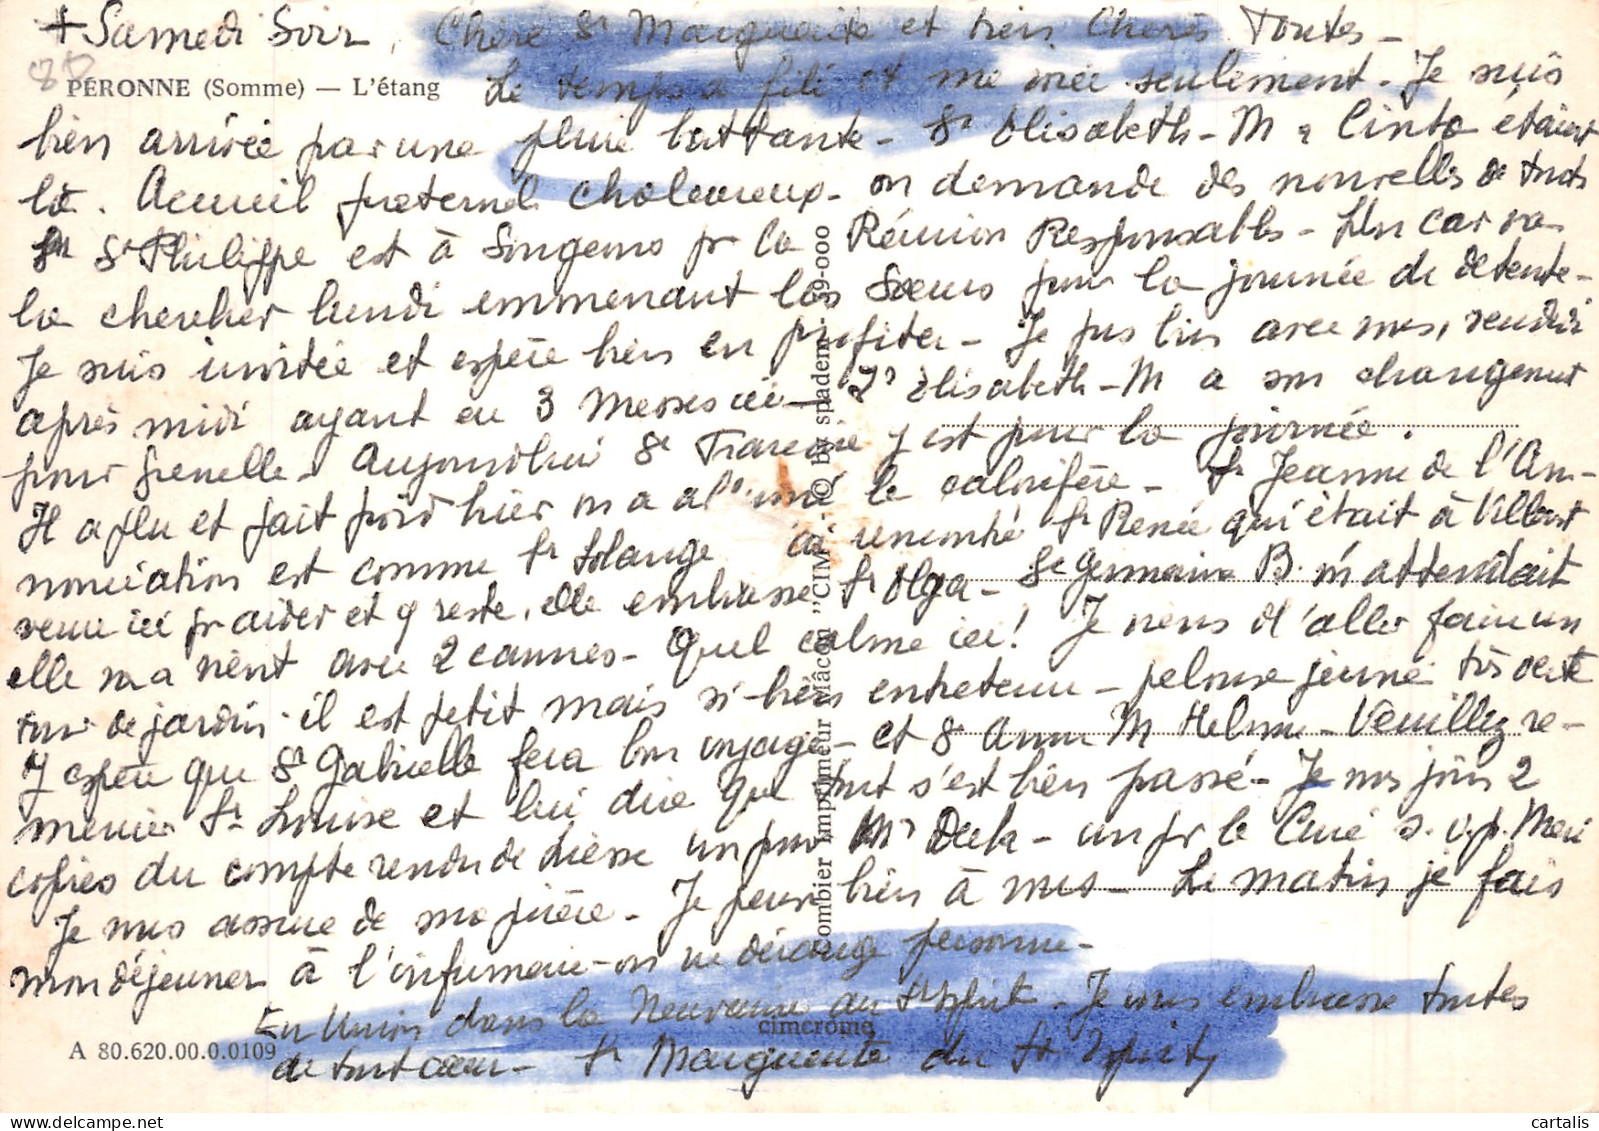 + Samedi Soir, Chère Sr Marguerite et bien Chères Toutes -
88
PÉRONNE (Somme) — L'étang
Le temps a filé et me voici seulement. Je suis
bien arrivée par une pluie battante - Sr Elisabeth - M étaient
là. Accueil fraternel chaleureux - on demande des nouvelles de toutes
Sr Philippe est à Songeons pr la Réunion Responsables - Un car va
la chercher lundi emmenant les Soeurs pour la journée de détente -
Je suis invitée et espère bien en profiter - Je pus bien avec vous, vendredi
après midi ayant eu 3 Messes ici - Sr Elisabeth - M a son changement
pour Grenelle - Aujourd'hui Sr y est pour la journée.
Il a plu et fait froid hier on a allumé le calorifère - Sr Jeanne de l'An-
nonciation est comme Sr Solange ai rencontré Sr Renée qui était à
venu ici pr aider et y reste, elle embrasse Sr Olga - Sr Germaine B. m'attendait
elle va et vient avec 2 cannes - Quel calme ici! Je viens d'aller faire un
tour de jardin. il est petit mais si bien entretenu - pelouse jeune très verte
J'espère que Sr Gabrielle fera bon voyage - et Sr Anne M - Veuillez re-
mercier Sr Louise et lui dire que tout s'est bien passé - Je vous joins 2
copies du compte rendu de Liesse un pour - un pr le Curé s. v. p. Merci
Je vous assure de ma prière - Je pense bien à vous - Le matin je fais
mon déjeuner à l'infirmerie - on ne dérange personne -
En Union dans la Neuvaine au St Esprit - Je vous embrasse toutes
de tout coeur - Sr Marguerite du St Esprit
A 80.620.00.0.0109
cimcrome
Combier imprimeur Mâcon "CIM" - © by spadem - 39-000
cartalis